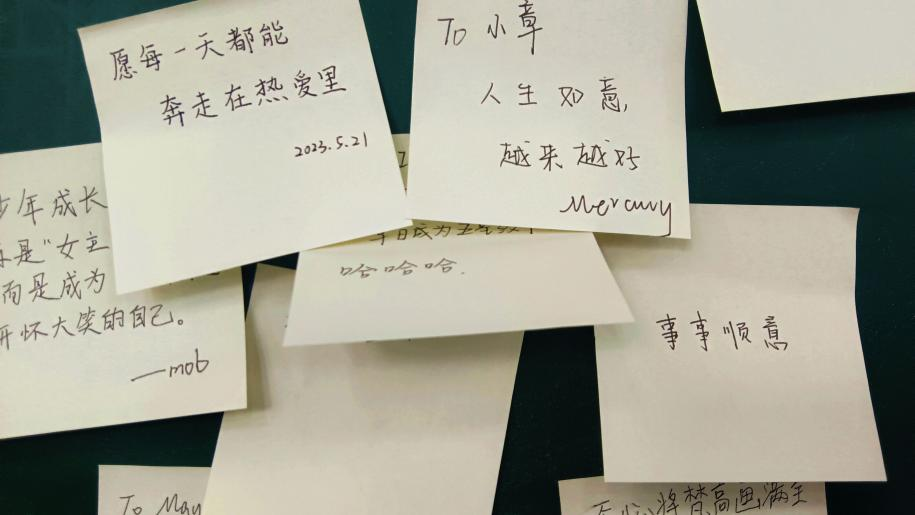 愿每一天都能
奔走在热爱里
2023.5.21
To 小章
人生如意,
越来越好
Mercury
少年成长
是"女主
而是成为
开怀大笑的自己。
—mob
哈哈哈.
事事顺意
To May